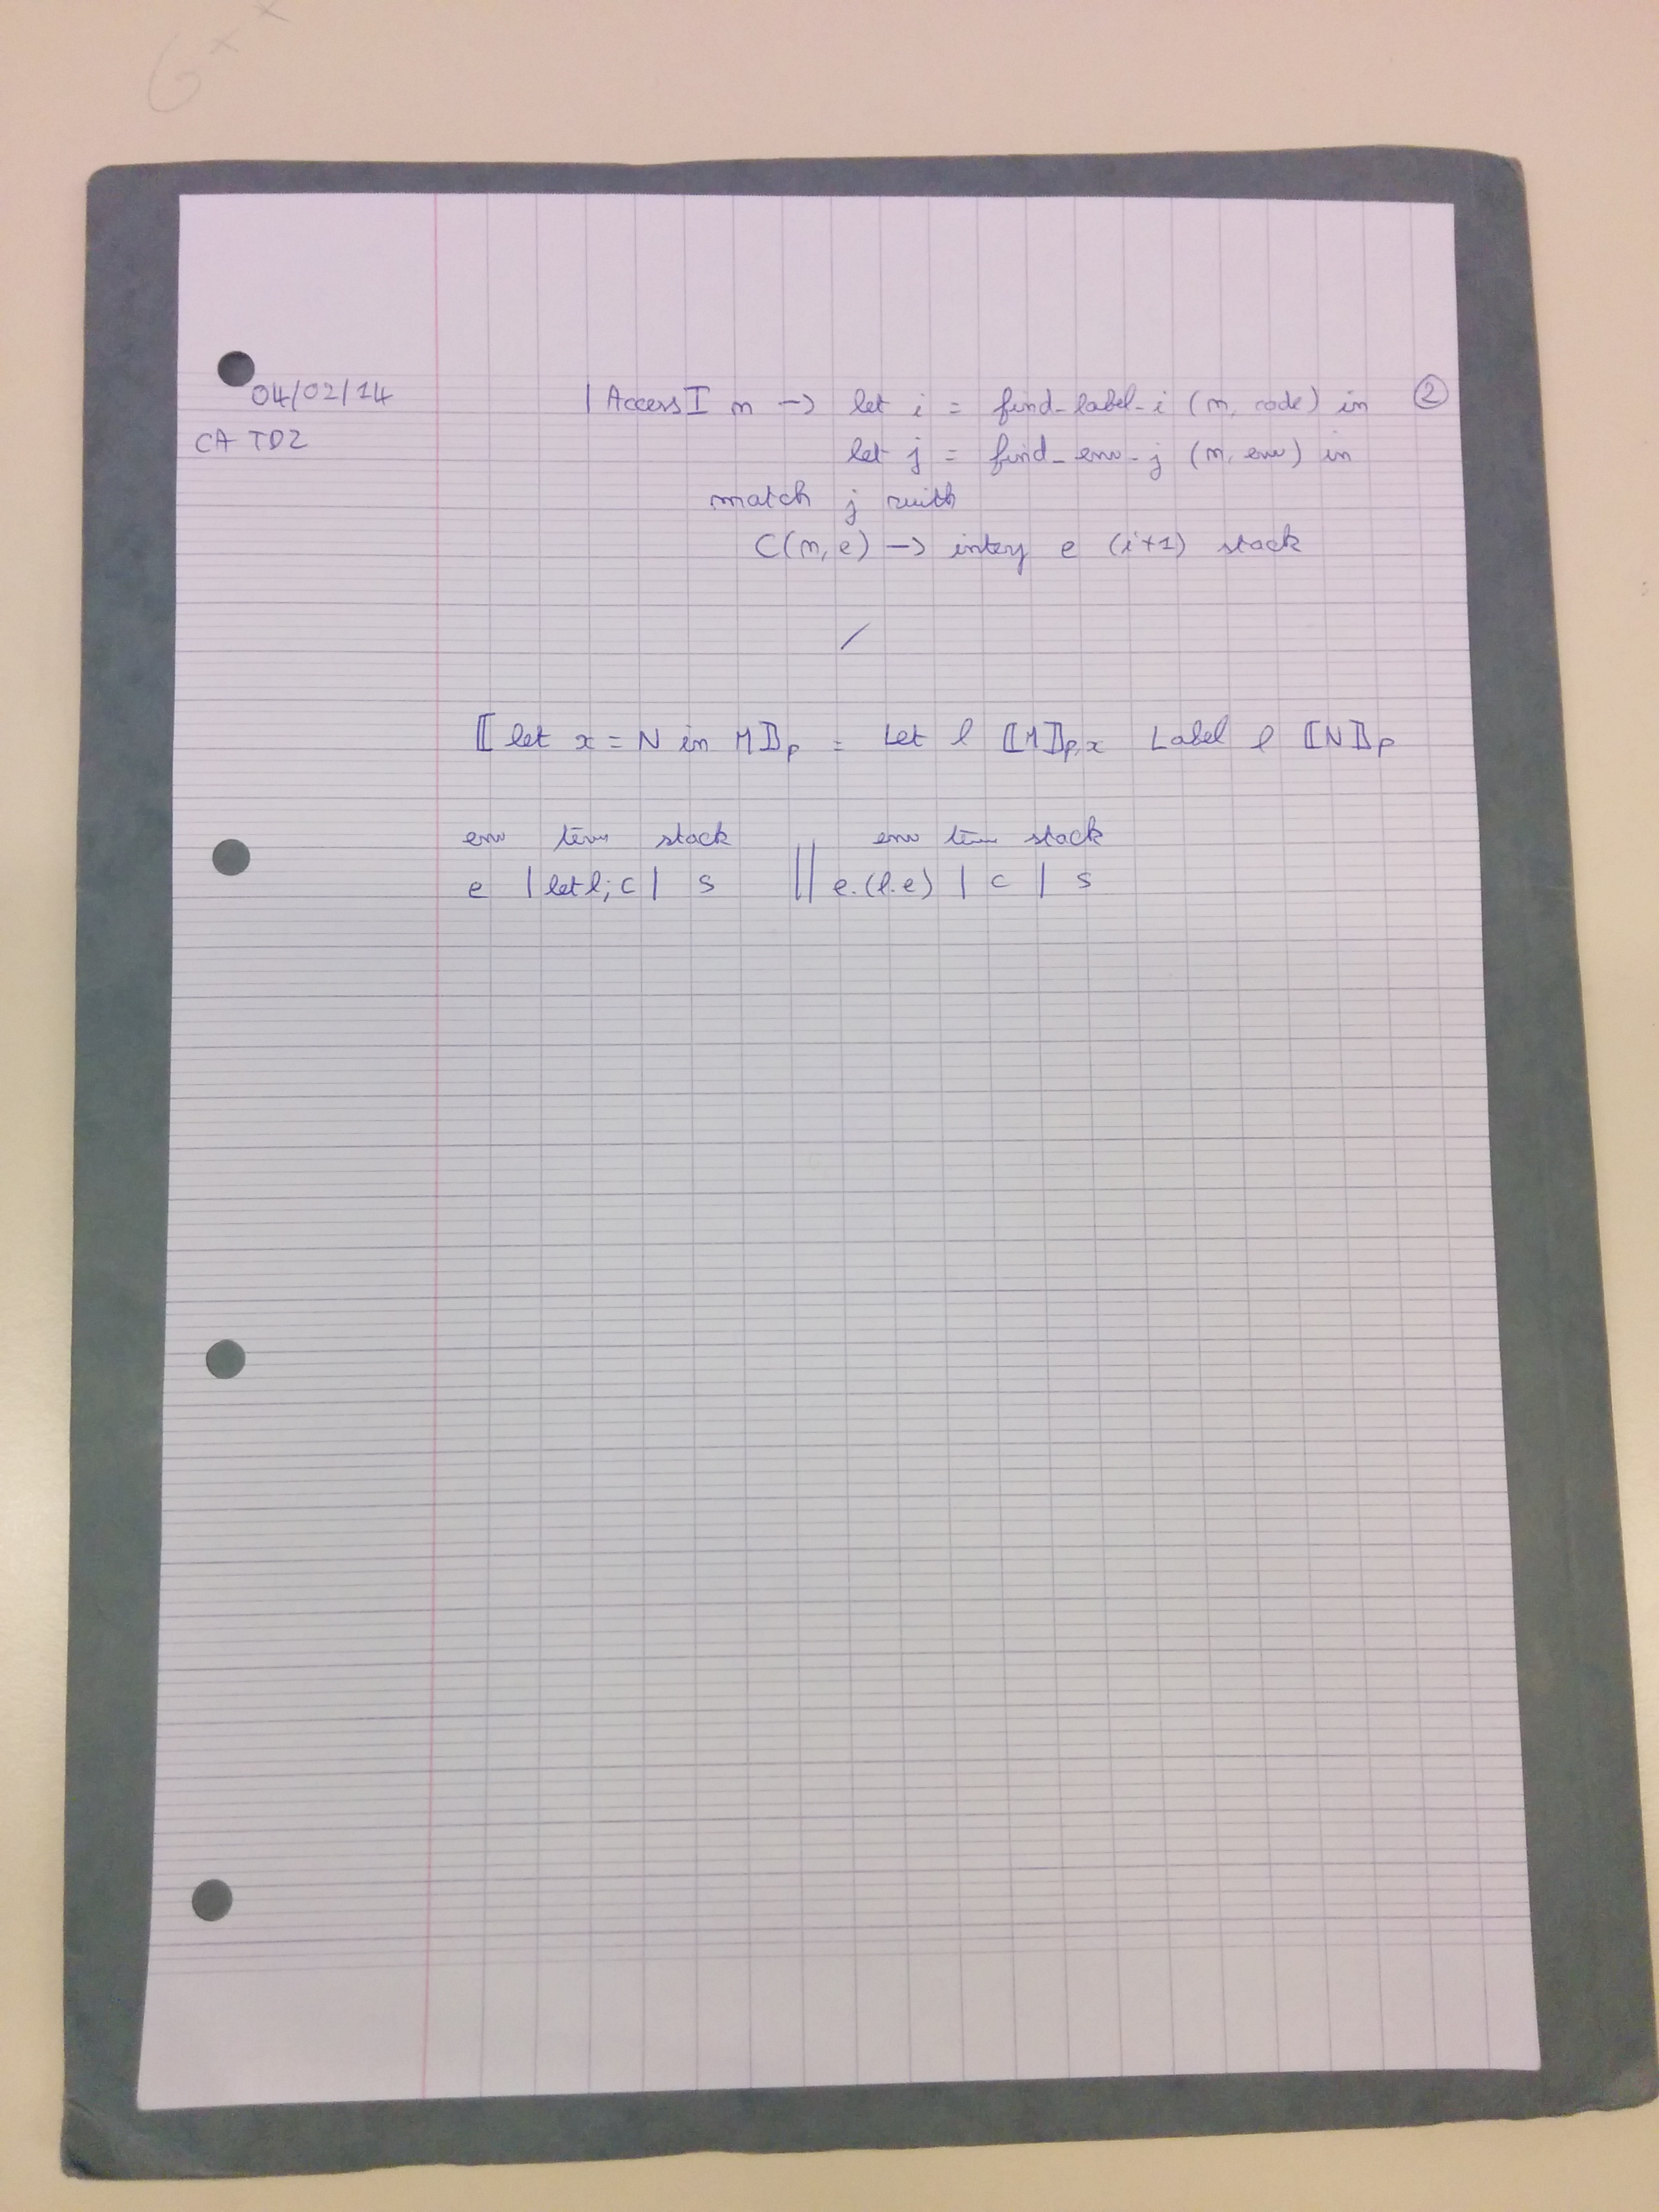 G x x
04/02/14
CA TD2
②
| AccessI n -> let i = find_label_i (n, code) in
let j = find_env_j (n, env) in
match j with
C(n, e) -> interp e (i+1) stack
/
⟦ let x = N in M⟧ρ = Let l ⟦M⟧ρ,x Label l ⟦N⟧ρ
env term stack || env term stack
e | let l; c | s || e.(l.e) | c | s